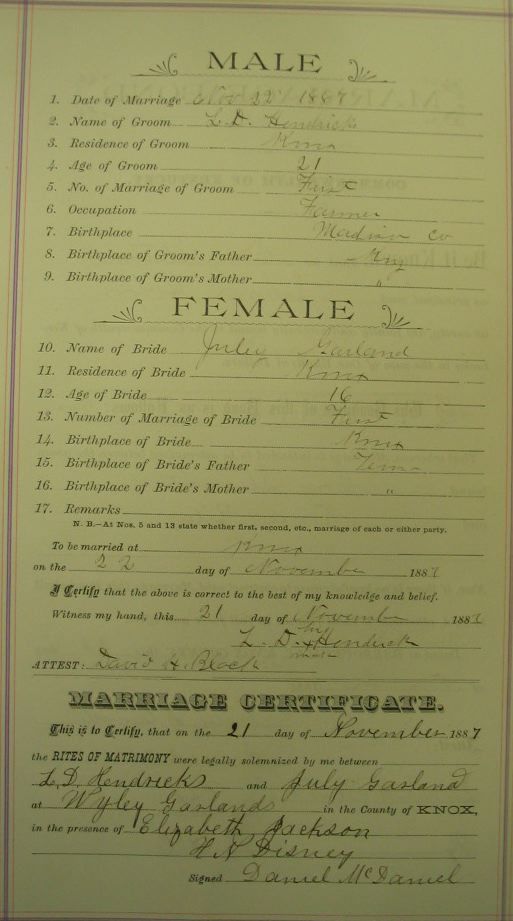 MALE
1. Date of Marriage Nov 22 1887
2. Name of Groom L. D. Hendrick
3. Residence of Groom Knox
4. Age of Groom 21
5. No. of Marriage of Groom First
6. Occupation Farmer
7. Birthplace Madison Co
8. Birthplace of Groom's Father Ky
9. Birthplace of Groom's Mother "
FEMALE
10. Name of Bride Juley Garland
11. Residence of Bride Knox
12. Age of Bride 16
13. Number of Marriage of Bride First
14. Birthplace of Bride Knox
15. Birthplace of Bride's Father Tenn
16. Birthplace of Bride's Mother "
17. Remarks
N. B.—At Nos. 5 and 13 state whether first, second, etc., marriage of each or either party.
To be married at Knox
on the 22 day of November 1887
I Certify that the above is correct to the best of my knowledge and belief.
Witness my hand, this 21 day of November 1887
his
L. D. x Hendrick
mark
ATTEST: David H. Black
MARRIAGE CERTIFICATE.
This is to Certify, that on the 21 day of November 1887
the RITES OF MATRIMONY were legally solemnized by me between
L D Hendricks and July Garland
at Wyley Garlands in the County of KNOX,
in the presence of Elizabeth Jackson
H N Disney
Signed Daniel McDaniel